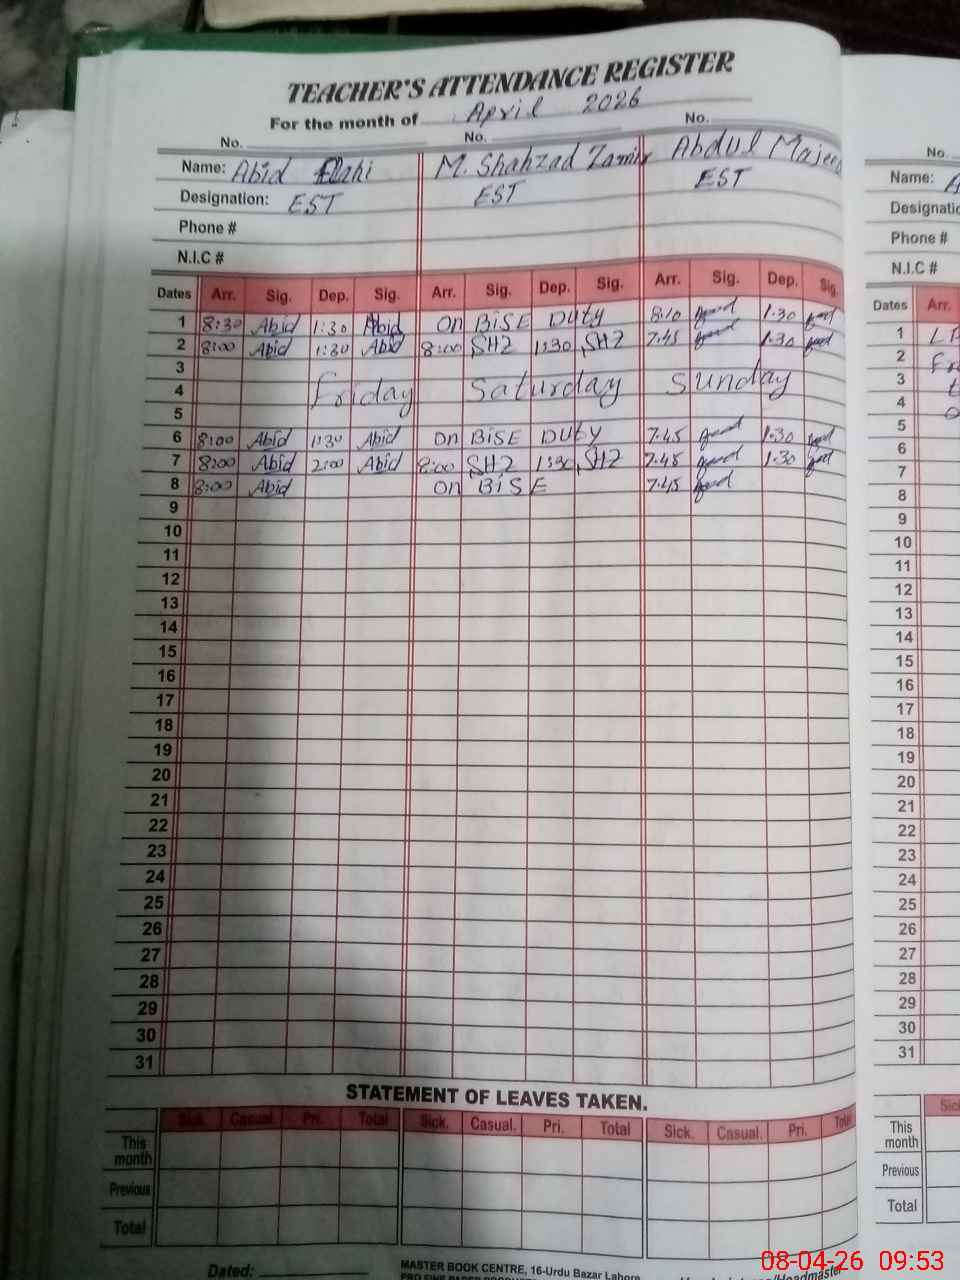 TEACHER'S ATTENDANCE REGISTER
For the month of April 2026
No. No. No.
Name: Abid Elahi M. Shahzad Zamir Abdul Majeed
Designation: EST EST EST
Phone #
N.I.C #
Dates Arr. Sig. Dep. Sig. Arr. Sig. Dep. Sig. Arr. Sig. Dep. Sig.
1 8:30 Abid 1:30 Abid On BISE Duty 8.10 1.30
2 8:00 Abid 1:30 Abid 8:00 SHZ 1:30 SHZ 7.45 1.30
3
4 Friday Saturday Sunday
5
6 8:00 Abid 1:30 Abid On BISE DUty 7.45 1.30
7 8:00 Abid 2:00 Abid 8:00 SHZ 1:30 SHZ 7.45 1.30
8 8:00 Abid On BISE 7.45
9
10
11
12
13
14
15
16
17
18
19
20
21
22
23
24
25
26
27
28
29
30
31
STATEMENT OF LEAVES TAKEN.
Sick. Casual. Pri. Total Sick. Casual. Pri. Total Sick. Casual. Pri. Total
This month
Previous
Total
Dated:
MASTER BOOK CENTRE, 16-Urdu Bazar Lahore
No.
Name:
Designatio
Phone #
N.I.C #
Dates Arr.
1
2
3
4
5
6
7
8
9
10
11
12
13
14
15
16
17
18
19
20
21
22
23
24
25
26
27
28
29
30
31
Sic
This month
Previous
Total
08-04-26 09:53